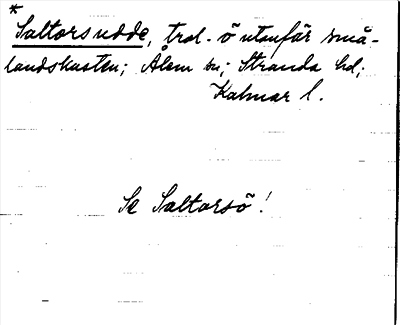 *
Saltorsudde, trol. ö utanför små-
landskusten; Ålem sn; Stranda hd;
Kalmar l.
Se Saltorsö!